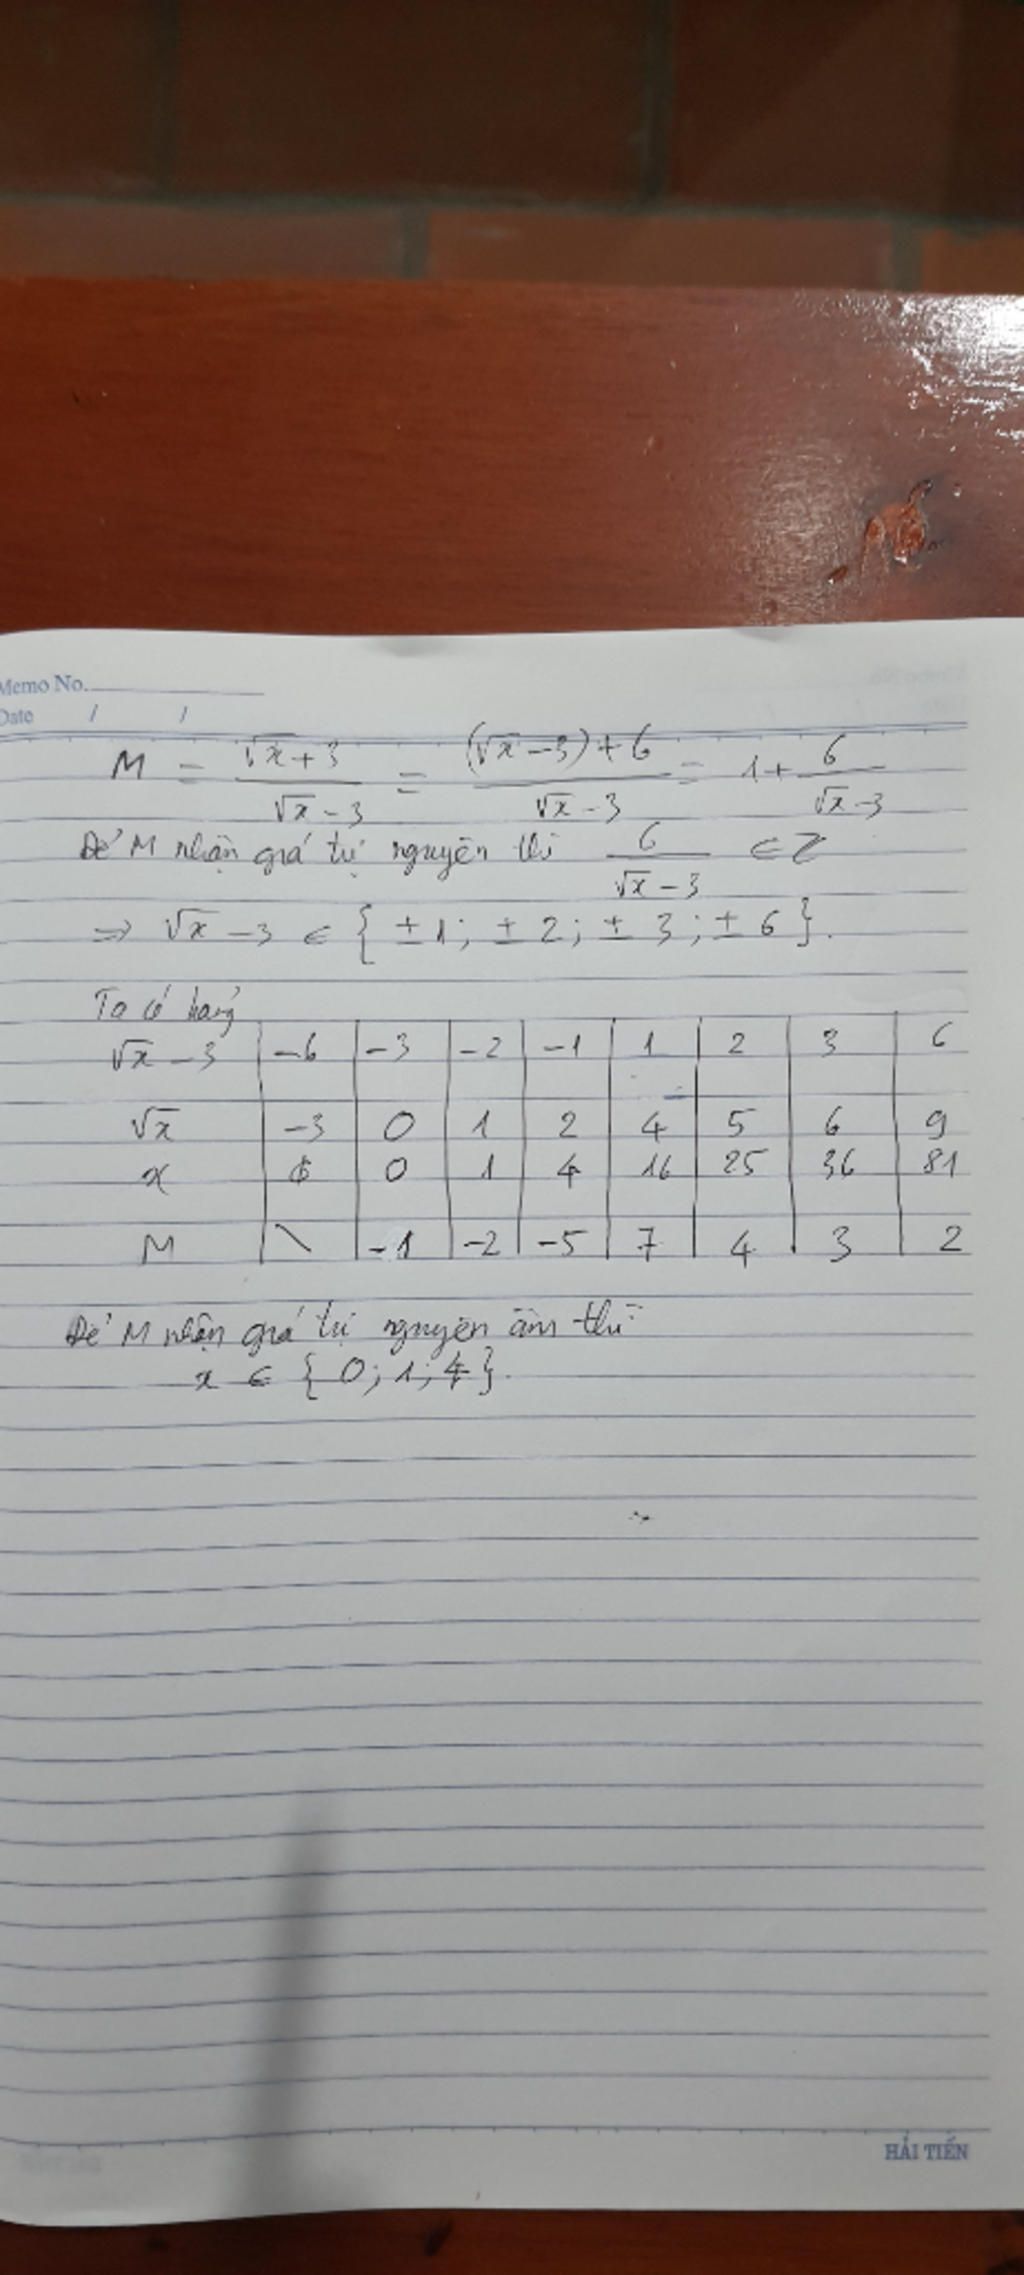 Memo No.
Date / /
M = (√x + 3)/(√x - 3) = ((√x - 3) + 6)/(√x - 3) = 1 + 6/(√x - 3)
Để M nhận giá trị nguyên thì 6/(√x - 3) ∈ Z
⇒ √x - 3 ∈ { ±1; ±2; ±3; ±6 }.
Ta có bảng
√x - 3 | -6 | -3 | -2 | -1 | 1 | 2 | 3 | 6
√x | -3 | 0 | 1 | 2 | 4 | 5 | 6 | 9
x | | 0 | 1 | 4 | 16 | 25 | 36 | 81
M | \ | -1 | -2 | -5 | 7 | 4 | 3 | 2
Để M nhận giá trị nguyên âm thì
x ∈ { 0; 1; 4 }.
HẢI TIẾN